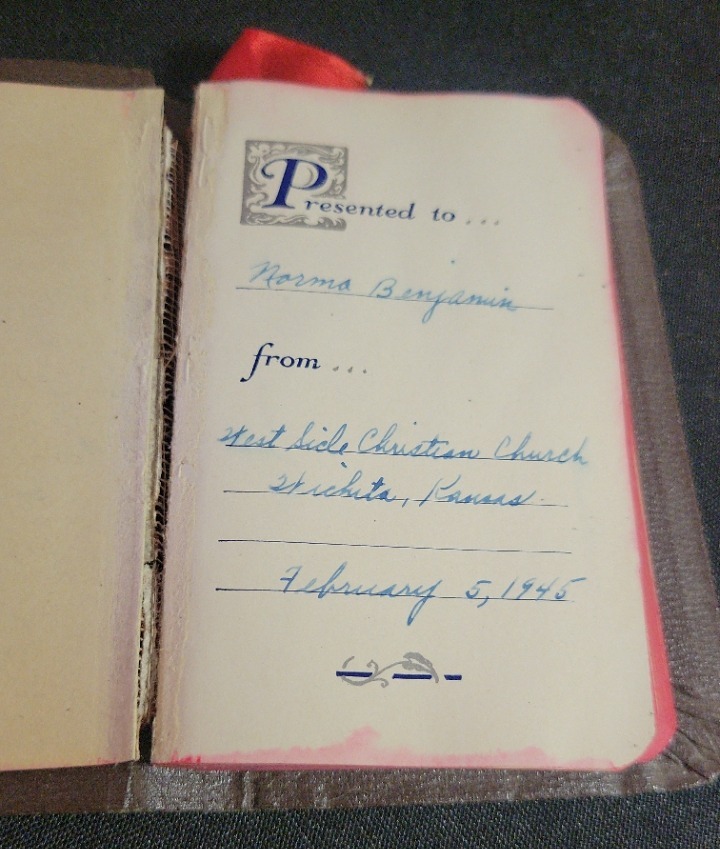 Presented to ...
Norma Benjamin
from ...
West Side Christian Church
Wichita, Kansas.
February 5, 1945